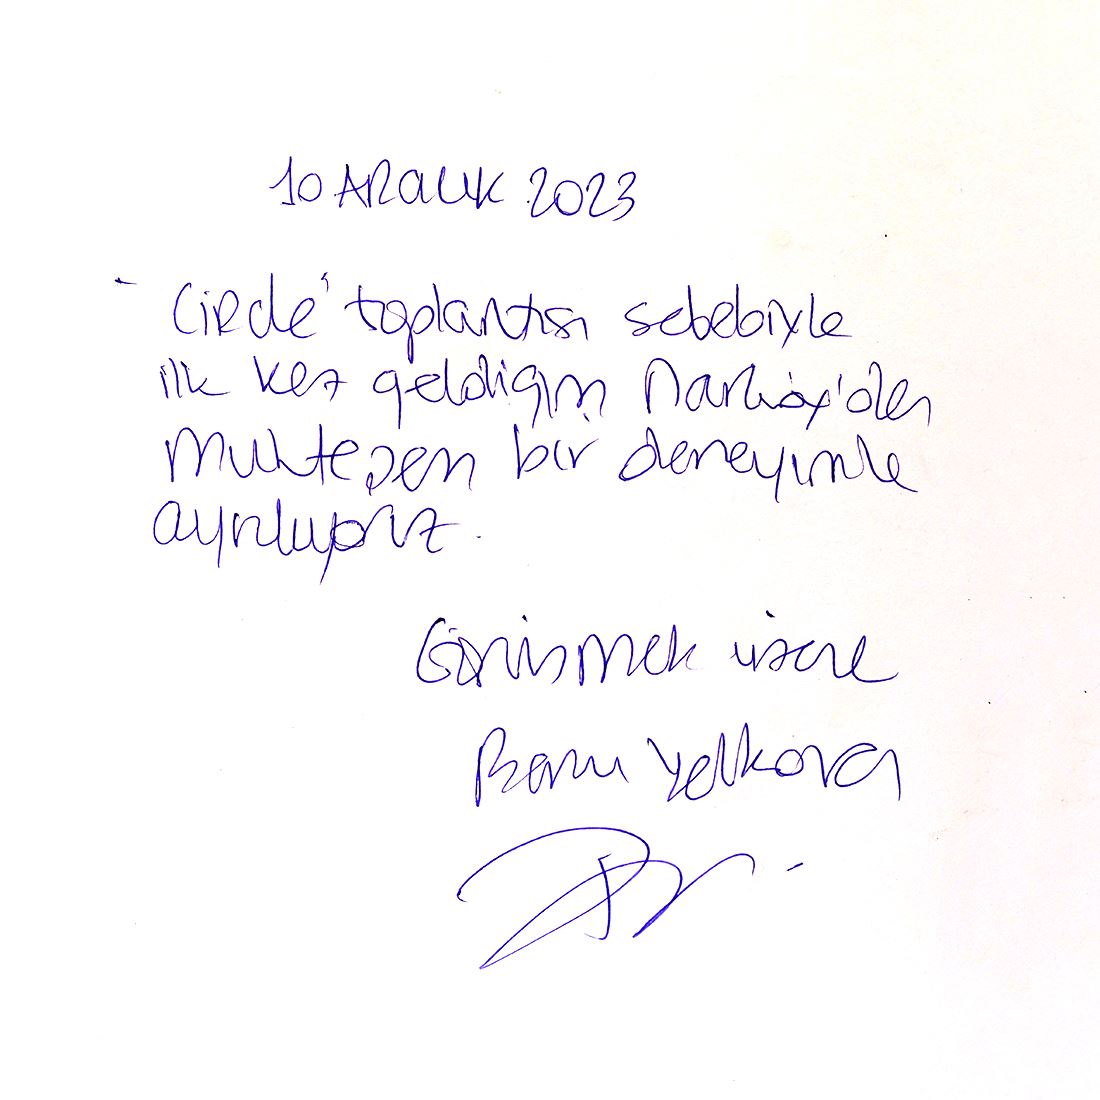 10 ARALIK 2023
'Circle' toplantısı sebebiyle
ilk kez geldiğim Narköy'den
muhteşem bir deneyimle
ayrılıyoruz.
Görüşmek üzere
Banu Yelkovan